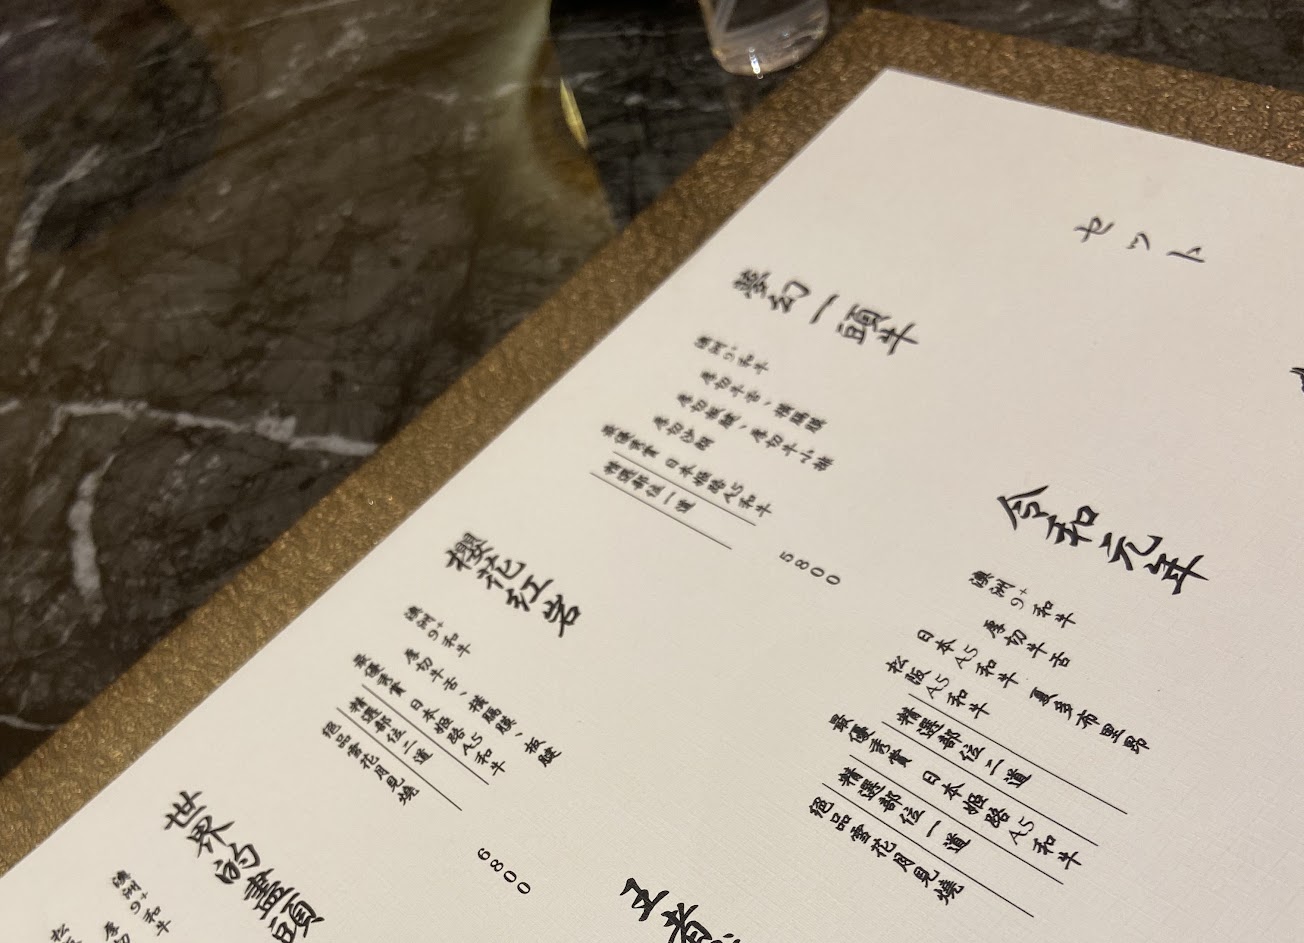 セット
夢幻一頭牛
澳洲9+和牛
厚切牛舌、橫膈膜
厚切板腱、厚切牛小排
厚切沙朗
最優秀賞 日本姬路A5和牛
精選部位一道
5800
櫻花紅岩
澳洲9+和牛
厚切牛舌、橫膈膜、板腱
最優秀賞 日本姬路A5和牛
精選部位二道
絕品雪花月見燒
6800
世界的盡頭
澳洲9+和牛
厚切
松
令和元年
澳洲9+和牛
厚切牛舌 夏多布里昂
日本A5和牛
松阪A5和牛
精選部位二道
最優秀賞 日本姬路A5和牛
精選部位一道
絕品雪花月見燒
王者